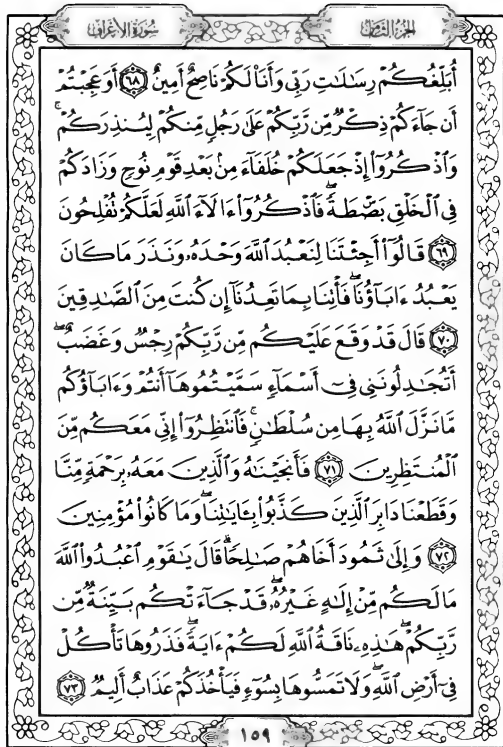 سُورَةُ الأَعْرَاف
الجُزْءُ الثَّامِن
أُبَلِّغُكُمْ رِسَٰلَٰتِ رَبِّى وَأَنَا۠ لَكُمْ نَاصِحٌ أَمِينٌ ٦٨ أَوَعَجِبْتُمْ
أَن جَآءَكُمْ ذِكْرٌ مِّن رَّبِّكُمْ عَلَىٰ رَجُلٍ مِّنكُمْ لِيُنذِرَكُمْ ۚ
وَٱذْكُرُوٓا۟ إِذْ جَعَلَكُمْ خُلَفَآءَ مِنۢ بَعْدِ قَوْمِ نُوحٍ وَزَادَكُمْ
فِى ٱلْخَلْقِ بَصْۜطَةً ۖ فَٱذْكُرُوٓا۟ ءَالَآءَ ٱللَّهِ لَعَلَّكُمْ تُفْلِحُونَ
٦٩ قَالُوٓا۟ أَجِئْتَنَا لِنَعْبُدَ ٱللَّهَ وَحْدَهُۥ وَنَذَرَ مَا كَانَ
يَعْبُدُ ءَابَآؤُنَا ۖ فَأْتِنَا بِمَا تَعِدُنَآ إِن كُنتَ مِنَ ٱلصَّٰدِقِينَ
٧٠ قَالَ قَدْ وَقَعَ عَلَيْكُم مِّن رَّبِّكُمْ رِجْسٌ وَغَضَبٌ ۖ
أَتُجَٰدِلُونَنِى فِىٓ أَسْمَآءٍ سَمَّيْتُمُوهَآ أَنتُمْ وَءَابَآؤُكُم
مَّا نَزَّلَ ٱللَّهُ بِهَا مِن سُلْطَٰنٍ ۚ فَٱنتَظِرُوٓا۟ إِنِّى مَعَكُم مِّنَ
ٱلْمُنتَظِرِينَ ٧١ فَأَنجَيْنَٰهُ وَٱلَّذِينَ مَعَهُۥ بِرَحْمَةٍ مِّنَّا
وَقَطَعْنَا دَابِرَ ٱلَّذِينَ كَذَّبُوا۟ بِـَٔايَٰتِنَا ۖ وَمَا كَانُوا۟ مُؤْمِنِينَ
٧٢ وَإِلَىٰ ثَمُودَ أَخَاهُمْ صَٰلِحًا ۗ قَالَ يَٰقَوْمِ ٱعْبُدُوا۟ ٱللَّهَ
مَا لَكُم مِّنْ إِلَٰهٍ غَيْرُهُۥ ۖ قَدْ جَآءَتْكُم بَيِّنَةٌ مِّن
رَّبِّكُمْ ۖ هَٰذِهِۦ نَاقَةُ ٱللَّهِ لَكُمْ ءَايَةً ۖ فَذَرُوهَا تَأْكُلْ
فِىٓ أَرْضِ ٱللَّهِ ۖ وَلَا تَمَسُّوهَا بِسُوٓءٍ فَيَأْخُذَكُمْ عَذَابٌ أَلِيمٌ ٧٣
١٥٩